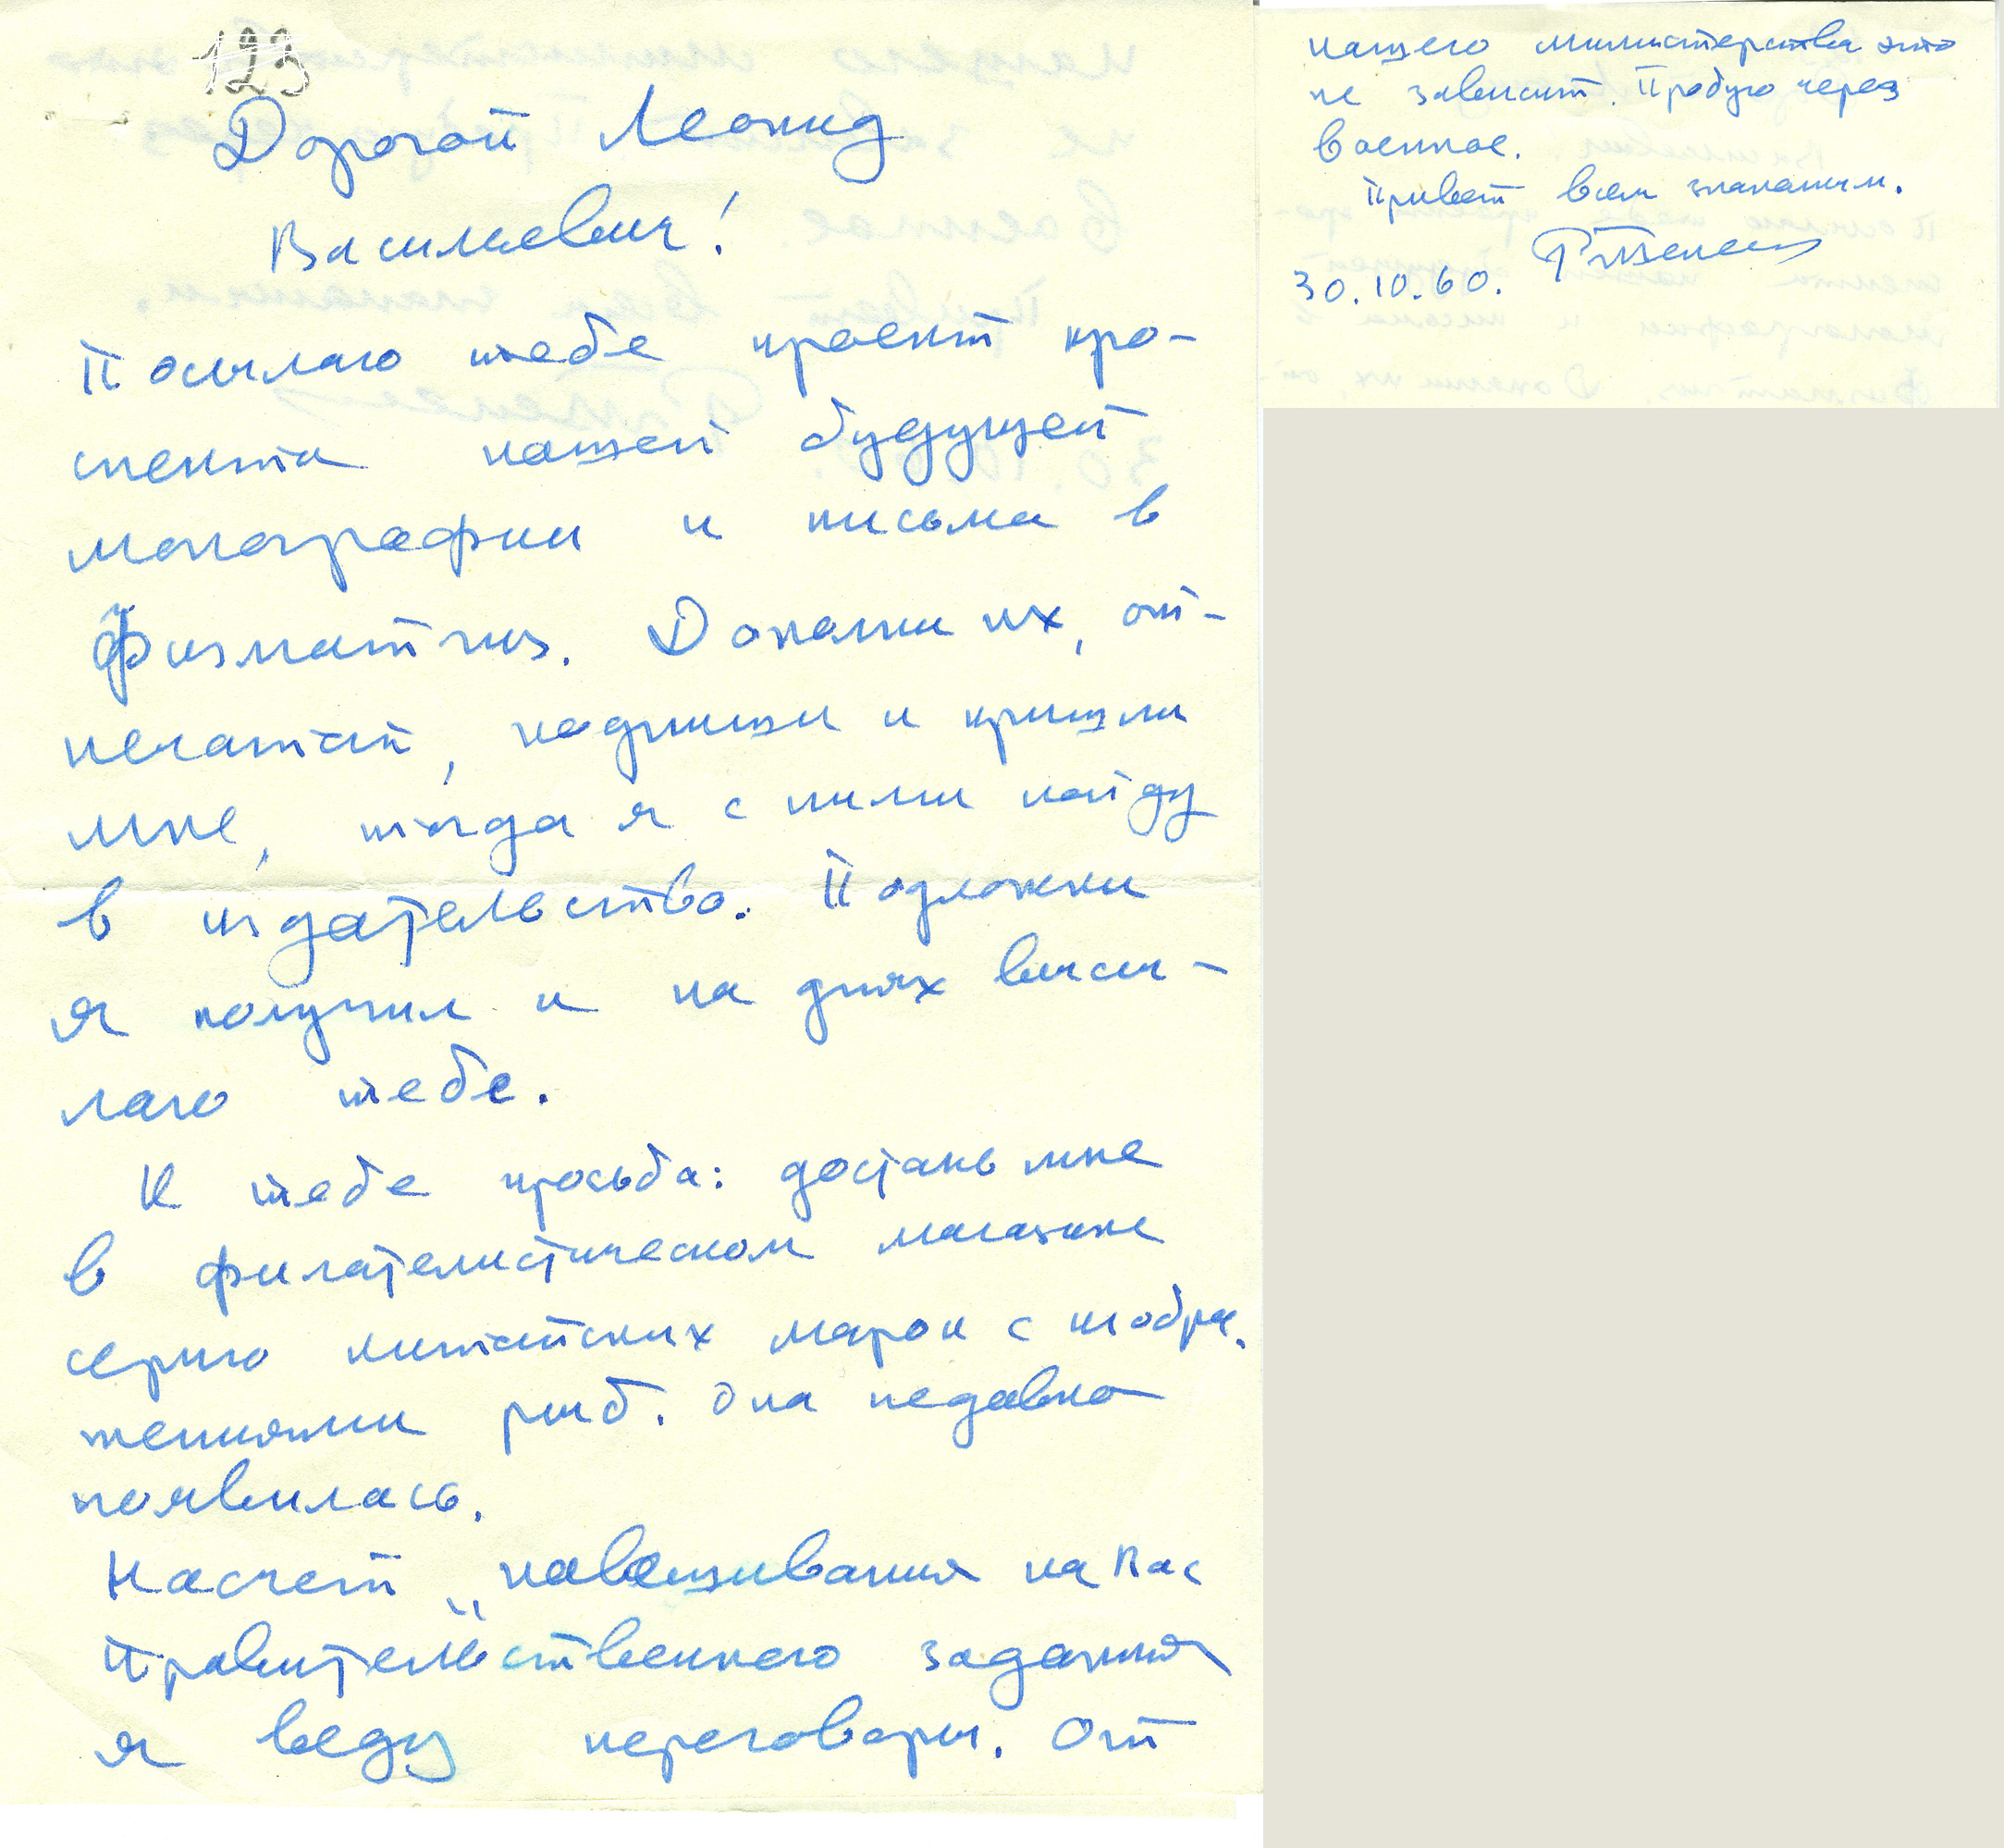 123
Дорогой Леонид
Васильевич!
Посылаю тебе проект про-
спекта нашей будущей
монографии и письма в
Физматгиз. Дополни их, от-
печатай, подпиши и пришли
мне, тогда я с ними пойду
в издательство. Подложки
я получил и на днях высы-
лаю тебе.
К тебе просьба: достань мне
в филателистическом магазине
серию китайских марок с изобра-
жениями рыб. Она недавно
появилась.
Насчет „навешивания на Вас
Правительственного задания
я веду переговоры. От
нашего министерства это
не зависит. Пробую через
военное.
Привет всем знакомым.
30.10.60.